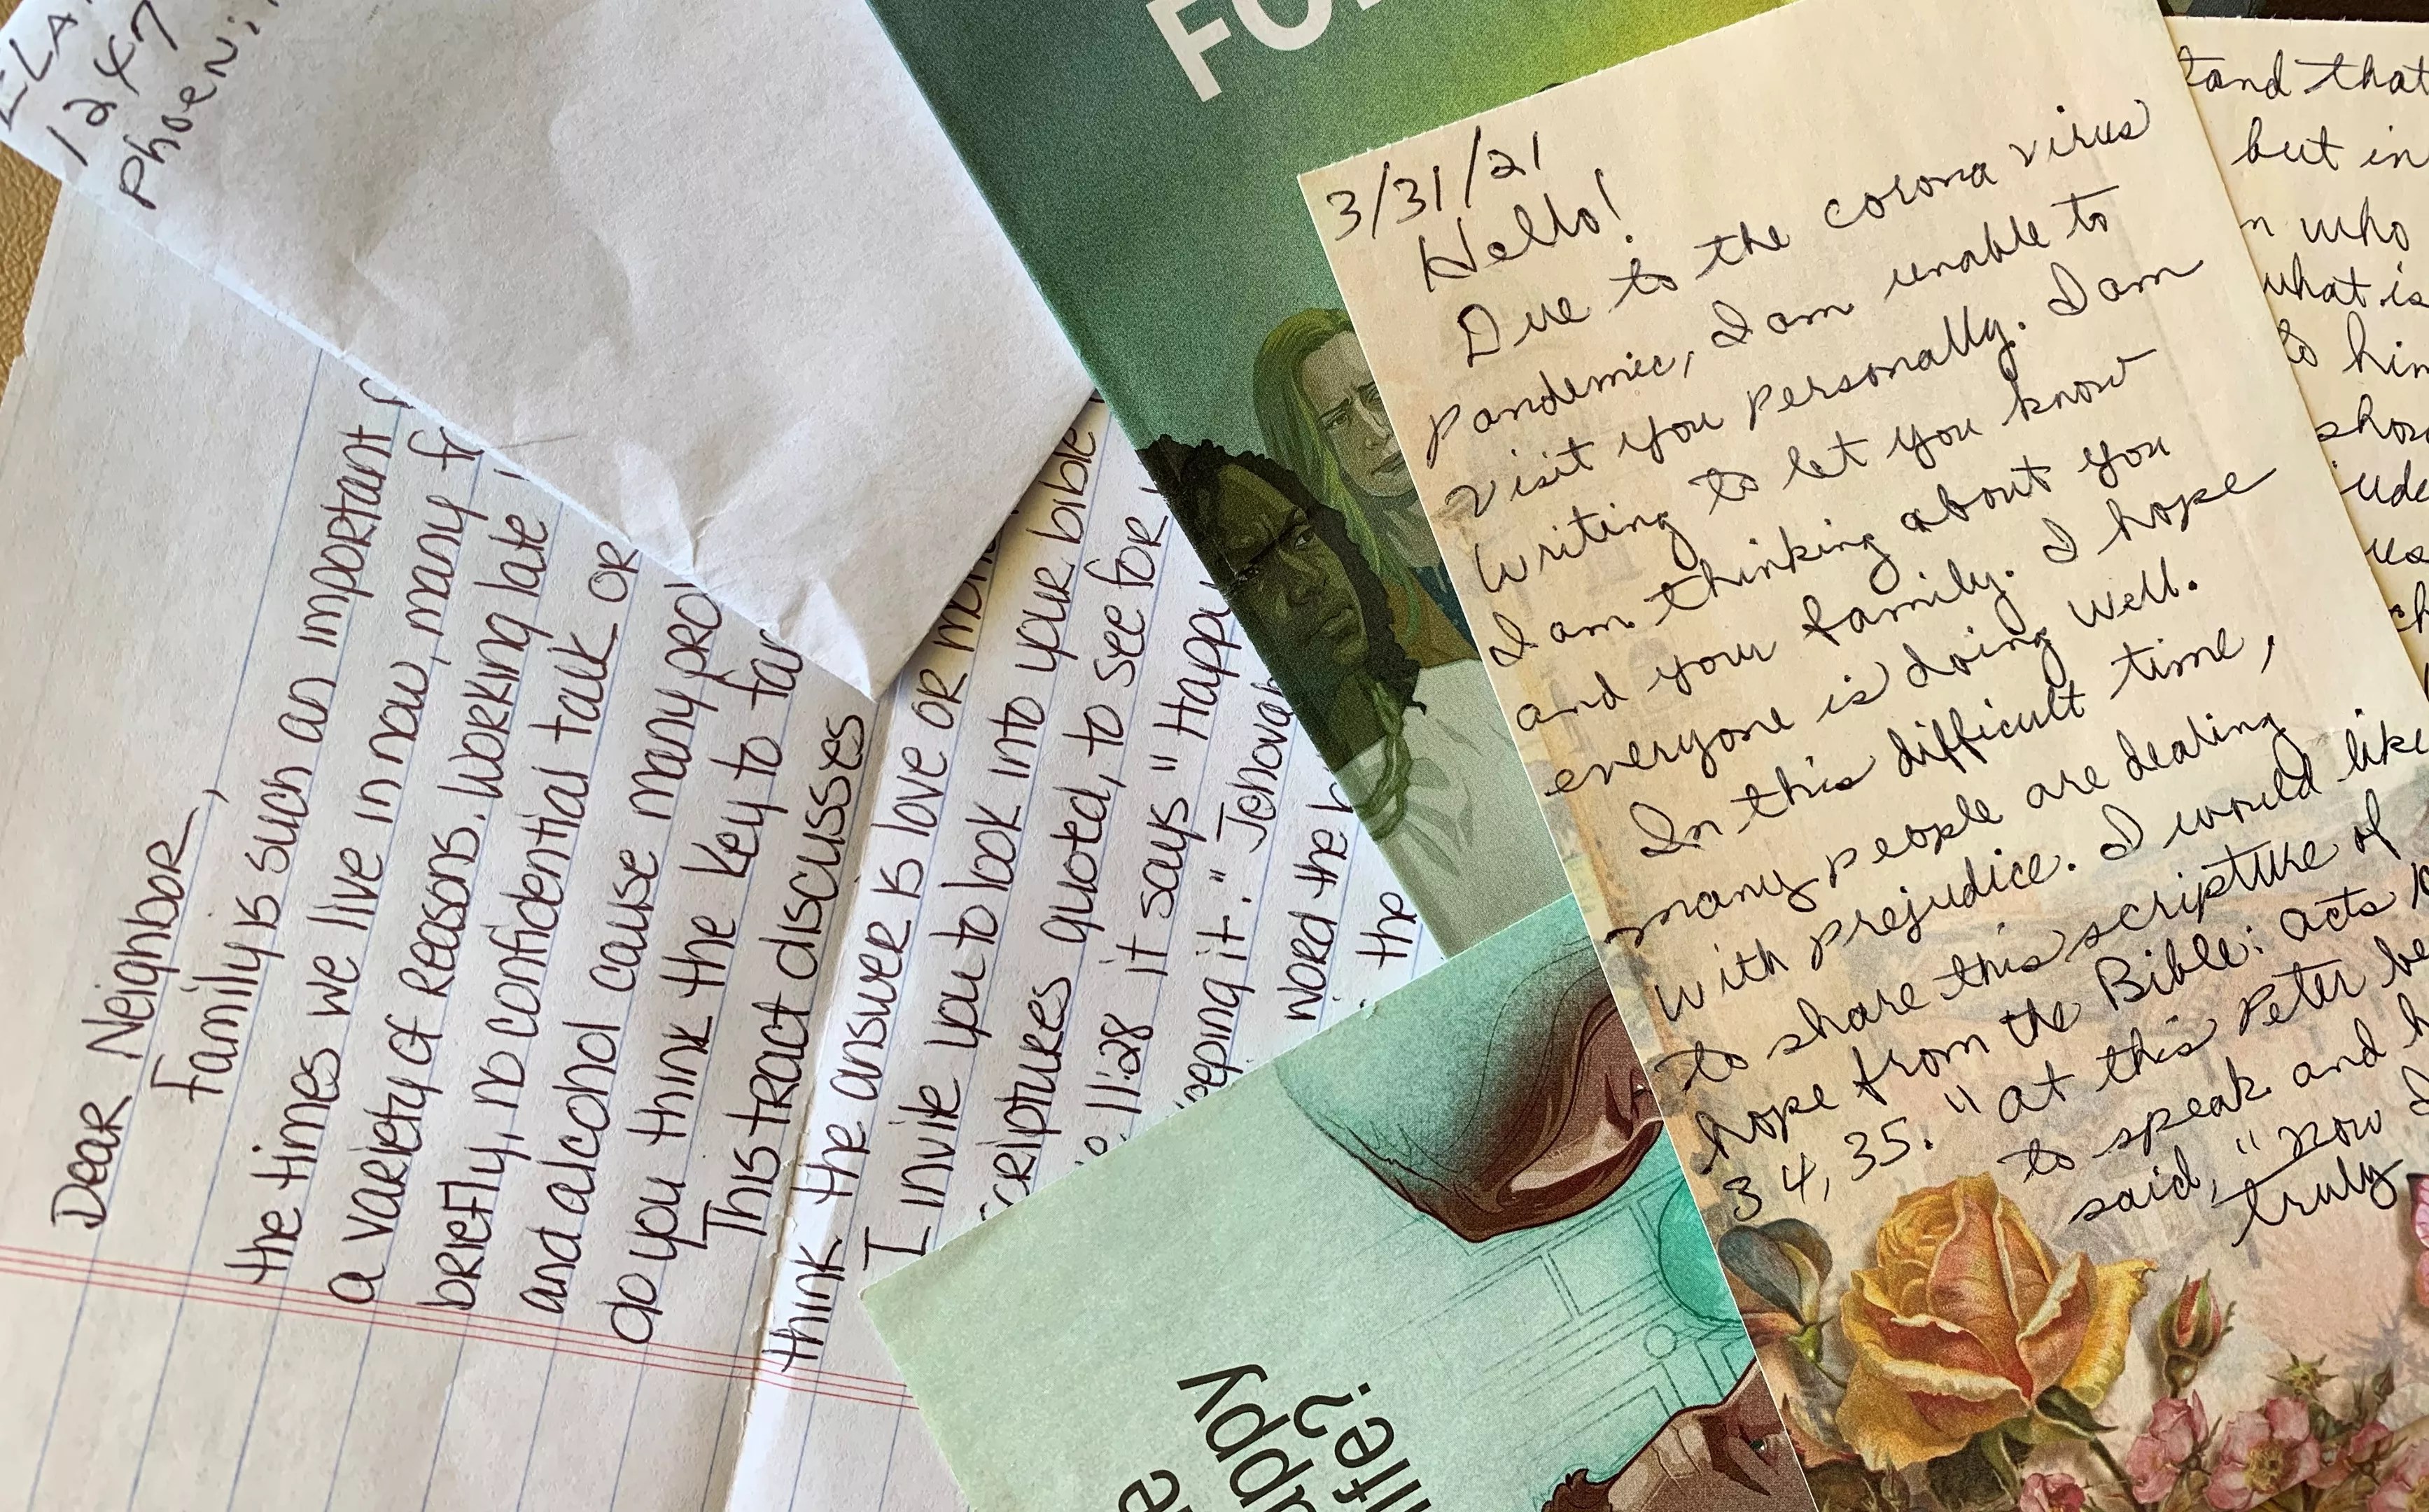 1247
Dear Neighbor,
Family is such an important
the times we live in now, many
a variety of reasons. Working late
briefly, no confidential talk or
and alcohol cause many
do you think the key to
This tract discusses
think the answer is love or
I invite you to look into your bible
quoted, to see for
11:28 it says "Happy
it." Jehovah
word the
the
3/31/21
Hello!
Due to the corona virus
pandemic, I am unable to
visit you personally. I am
writing to let you know
I am thinking about you
and your family. I hope
everyone is doing well.
In this difficult time,
many people are dealing
with prejudice. I would like
to share this scripture of
hope from the Bible: Acts
34, 35. "At this Peter
to speak and
said, "now I
truly
that
but in
who
what is
to